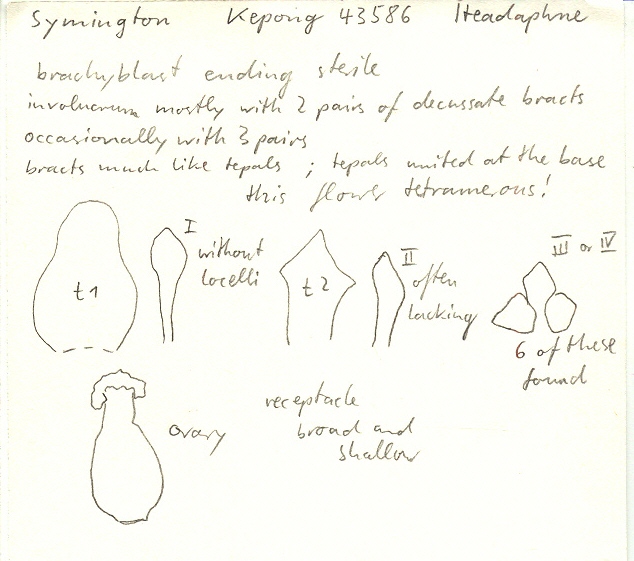 Symington Kepong 43586 Iteadaphne
brachyblast ending sterile
involucrum mostly with 2 pairs of decussate bracts
occasionally with 3 pairs
bracts much like tepals ; tepals united at the base
this flower tetramerous!
t1
I
without
locelli
t2
II
often
lacking
III or IV
6 of these
found
ovary
receptacle
broad and
shallow